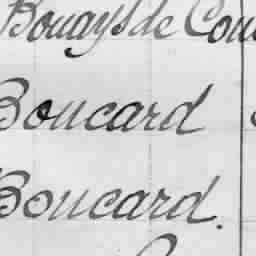 Bouays de Cou
Boucard
Boucard.